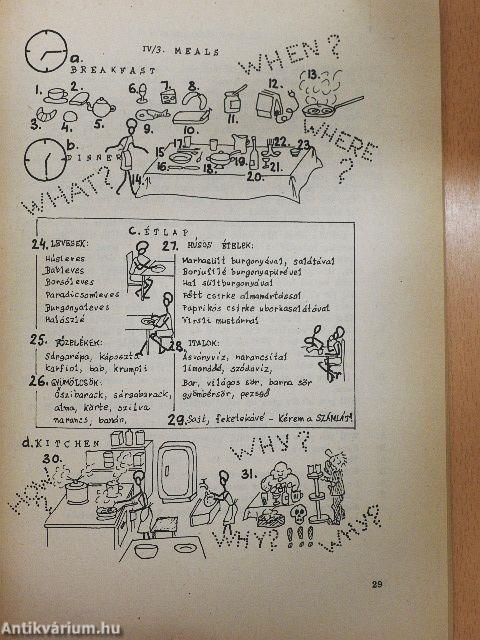 IV/3. MEALS
WHEN?
a.
BREAKFAST
1. 2. 6. 7. 8. 11. 12. 13.
3. 4. 5. 9. 10.
WHERE?
b.
DINNER
WHAT?
14. 15 16 17 18. 19. 20. 21. 22. 23
C. ÉTLAP
24. LEVESEK:
Húsleves
Bableves
Borsóleves
Paradicsomleves
Burgonyaleves
Halászlé
25. FŐZELÉKEK:
Sárgarépa, káposzta
karfiol, bab, krumpli
26. GYÜMÖLCSÖK:
Őszibarack, sárgabarack,
alma, körte, szilva
narancs, banán,
27. HÚSOS ÉTELEK:
Marhasült burgonyával, salátával
Borjusülé burgonyapürével
Hal sültburgonyával
Főtt csirke almamártással
Paprikás csirke uborkasalátával
Virsli mustárral
28. ITALOK:
Ásványvíz, narancsital
limonádé, szódavíz,
Bor, világos sör, barna sör
gyömbérsör, pezsgő
29. Sajt, feketekávé - Kérem a SZÁMLÁT!
d. KITCHEN
30.
WHY?
31.
WHY?
WHY?
29
Antikvárium.hu